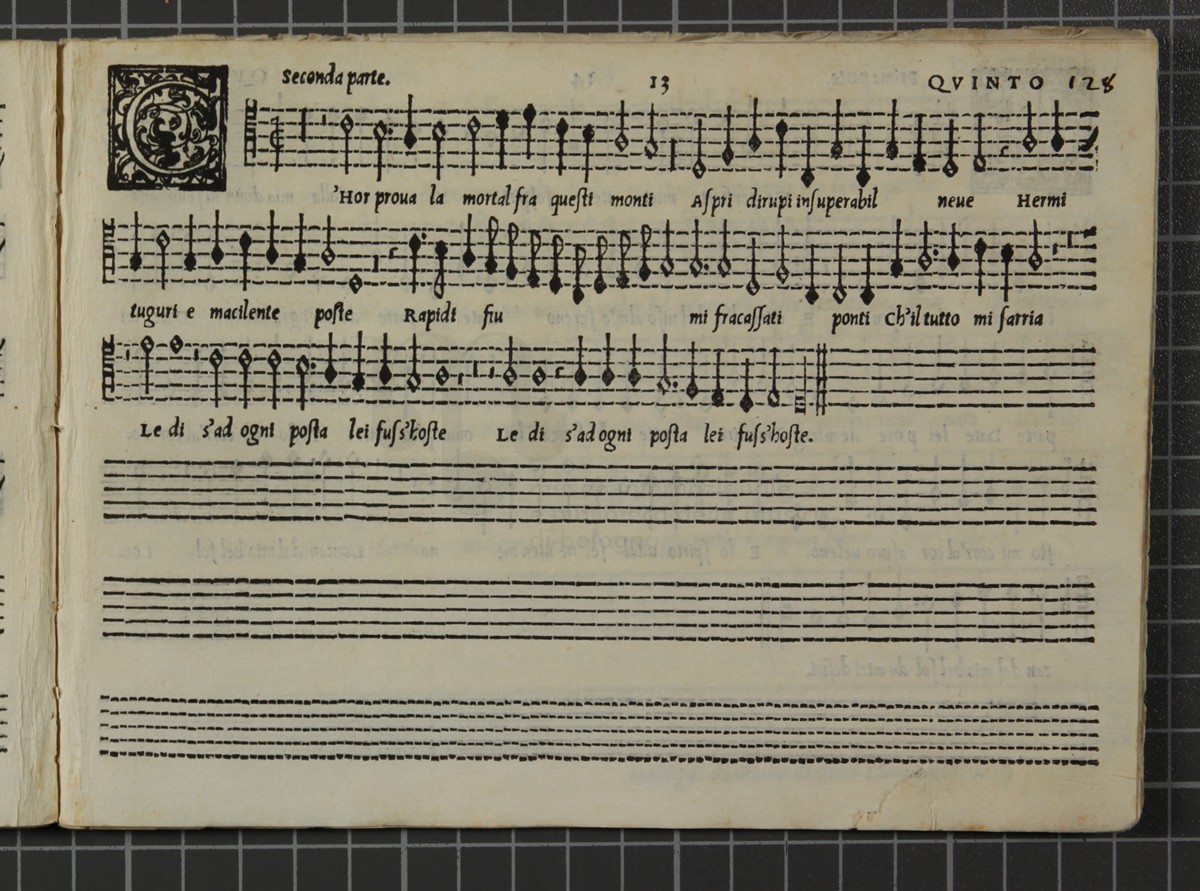 Seconda parte. 13 QVINTO 128
C'Hor proua la mortal fra questi monti Aspri dirupi insuperabil neue Hermi
tuguri e macilente poste Rapidi fiu mi fracassati ponti Ch'il tutto mi sarria
Le di s'ad ogni posta lei fuss'hoste Le di s'ad ogni posta lei fuss'hoste.